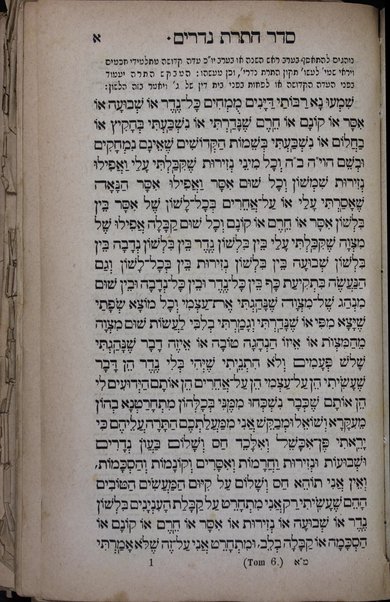 סדר התרת נדרים·
א
נוהגים להתאסף בערב ראש השנה או בערב יו״כ עדה קדושה מתלמידי חכמים
ויראי שמי׳ לעשו׳ תקון התרת נדרי׳, וכן מעשהו: המבקש התרה יעמוד
בפני העדה הקדושה או לפחות בפני בית דין של ג׳ ויאמר כזה הלשון:
שִׁמְעוּ נָא רַבּוֹתַי דַּיָּנִים מֻמְחִים כָּל־נֶדֶר אוֹ שְׁבוּעָה אוֹ
אִסָּר אוֹ קוֹנָם אוֹ חֵרֶם שֶׁנָּדַרְתִּי אוֹ נִשְׁבַּעְתִּי בְּהָקִיץ אוֹ
בַחֲלוֹם אוֹ נִשְׁבַּעְתִּי בְּשֵׁמוֹת הַקְּדוֹשִׁים שֶׁאֵינָם נִמְחָקִים
וּבְשֵׁם הוי״ה ב״ה וְכָל מִינֵי נְזִירוּת שֶׁקִּבַּלְתִּי עָלַי וַאֲפִילוּ
נְזִירוּת שִׁמְשׁוֹן וְכָל שׁוּם אִסָּר וַאֲפִילוּ אִסָּר הֲנָאָה
שֶׁאָסַרְתִּי עָלַי אוֹ עַל־אֲחֵרִים בְּכָל־לָשׁוֹן שֶׁל אִסָּר בֵּין
בִּלְשׁוֹן אִסָּר אוֹ חֵרֶם אוֹ קוֹנָם וְכָל שׁוּם קַבָּלָה אֲפִילוּ שֶׁל
מִצְוָה שֶׁקִּבַּלְתִּי עָלַי בֵּין בִּלְשׁוֹן נֶדֶר בֵּין בִּלְשׁוֹן נְדָבָה בֵּין
בִּלְשׁוֹן שְׁבוּעָה בֵּין בִּלְשׁוֹן נְזִירוּת בֵּין בְּכָל־לָשׁוֹן וְגַם
הַנַּעֲשֶׂה בִתְקִיעַת כַּף בֵּין כָּל־נֶדֶר וּבֵין כָּל־נְדָבָה וּבֵין שׁוּם
מִנְהָג שֶׁל־מִצְוָה שֶׁנָּהַגְתִּי אֶת־עַצְמִי וְכָל מוֹצָא שְׂפָתַי
שֶׁיָּצָא מִפִּי אוֹ שֶׁנָּדַרְתִּי וְגָמַרְתִּי בְלִבִּי לַעֲשׂוֹת שׁוּם מִצְוָה
מֵהַמִּצְוֹת אוֹ אֵיזוֹ הַנְהָגָה טוֹבָה אוֹ אֵיזֶה דָבָר שֶׁנָּהַגְתִּי
שָׁלֹשׁ פְּעָמִים וְלֹא הִתְנֵיתִי שֶׁיְּהִי בְּלִי נֶדֶר הֵן דָּבָר
שֶׁעָשִׂיתִי הֵן עַל־עַצְמִי הֵן עַל־אֲחֵרִים הֵן אוֹתָם הַיְדוּעִים לִי
הֵן אוֹתָם שֶׁכְּבָר נִשְׁכְּחוּ מִמֶּנִּי בְּכֻלְּהוֹן מִתְחָרַטְנָא בְהוֹן
מֵעִקָּרָא וְשׁוֹאֵל וּמְבַקֵּשׁ אֲנִי מִמַּעֲלַתְכֶם הַתָּרָה עֲלֵיהֶם כִּי
יָרֵאתִי פֶּן־אֶכָּשֵׁל וְאִלָּכֵד חַס וְשָׁלוֹם בַּעֲוֹן נְדָרִים
וּשְׁבוּעוֹת וּנְזִירוּת וַחֲרָמוֹת וְאִסָּרִים וְקוֹנָמוֹת וְהַסְכָּמוֹת,
וְאֵין אֲנִי תוֹהֵא חַס וְשָׁלוֹם עַל קִיּוּם הַמַּעֲשִׂים הַטּוֹבִים
הָהֵם שֶׁעָשִׂיתִי רַק אֲנִי מִתְחָרֵט עַל קַבָּלַת הָעִנְיָנִים בִּלְשׁוֹן
נֶדֶר אוֹ שְׁבוּעָה אוֹ נְזִירוּת אוֹ אִסָּר אוֹ חֵרֶם אוֹ קוֹנָם אוֹ
הַסְכָּמָה אוֹ קַבָּלָה בְלֵב, וּמִתְחָרֵט אֲנִי עַל־זֶה שֶׁלֹּא אָמַרְתִּי
מ״א (Tom 6.) 1